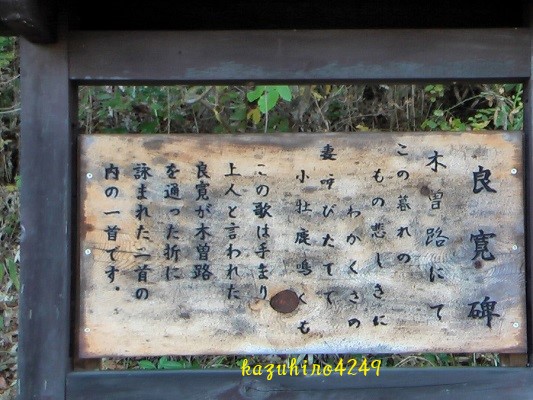 良寛碑
木曽路にて
この暮れの
もの悲しきに
わかくさの
妻呼びたてて
小牡鹿鳴くも
この歌は手まり
上人と言われた
良寛が木曽路
を通った折に
詠まれた二首の
内の一首です。
kazuhiro4249